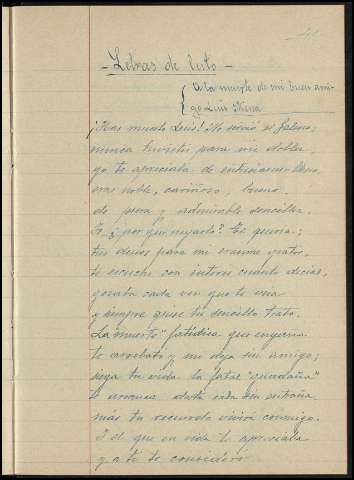 - Letras de luto -
A la muerte de mi buen ami-
go Luis Mena
¡Has muerto Luis! No
nunca tuviste, para mi doblez,
yo te apreciaba de entusiasmo lleno,
eras noble, cariñoso, bueno
de pura y admirable sencillez.
Y ¿por qué negarlo? Te quería;
tus deseos para mi eran gratos,
te escuché con interés cuanto decías,
gozaba cada vez que te veía
y siempre quise tu sencillo trato.
La muerte fatídica que engaña
te arrebató y me deja sin amigo;
siega tu vida la fatal "guadaña"
te arranca de esta vida sin entraña
más tu recuerdo vivirá conmigo.
Y el que en vida te apreciaba
y a ti te consideró